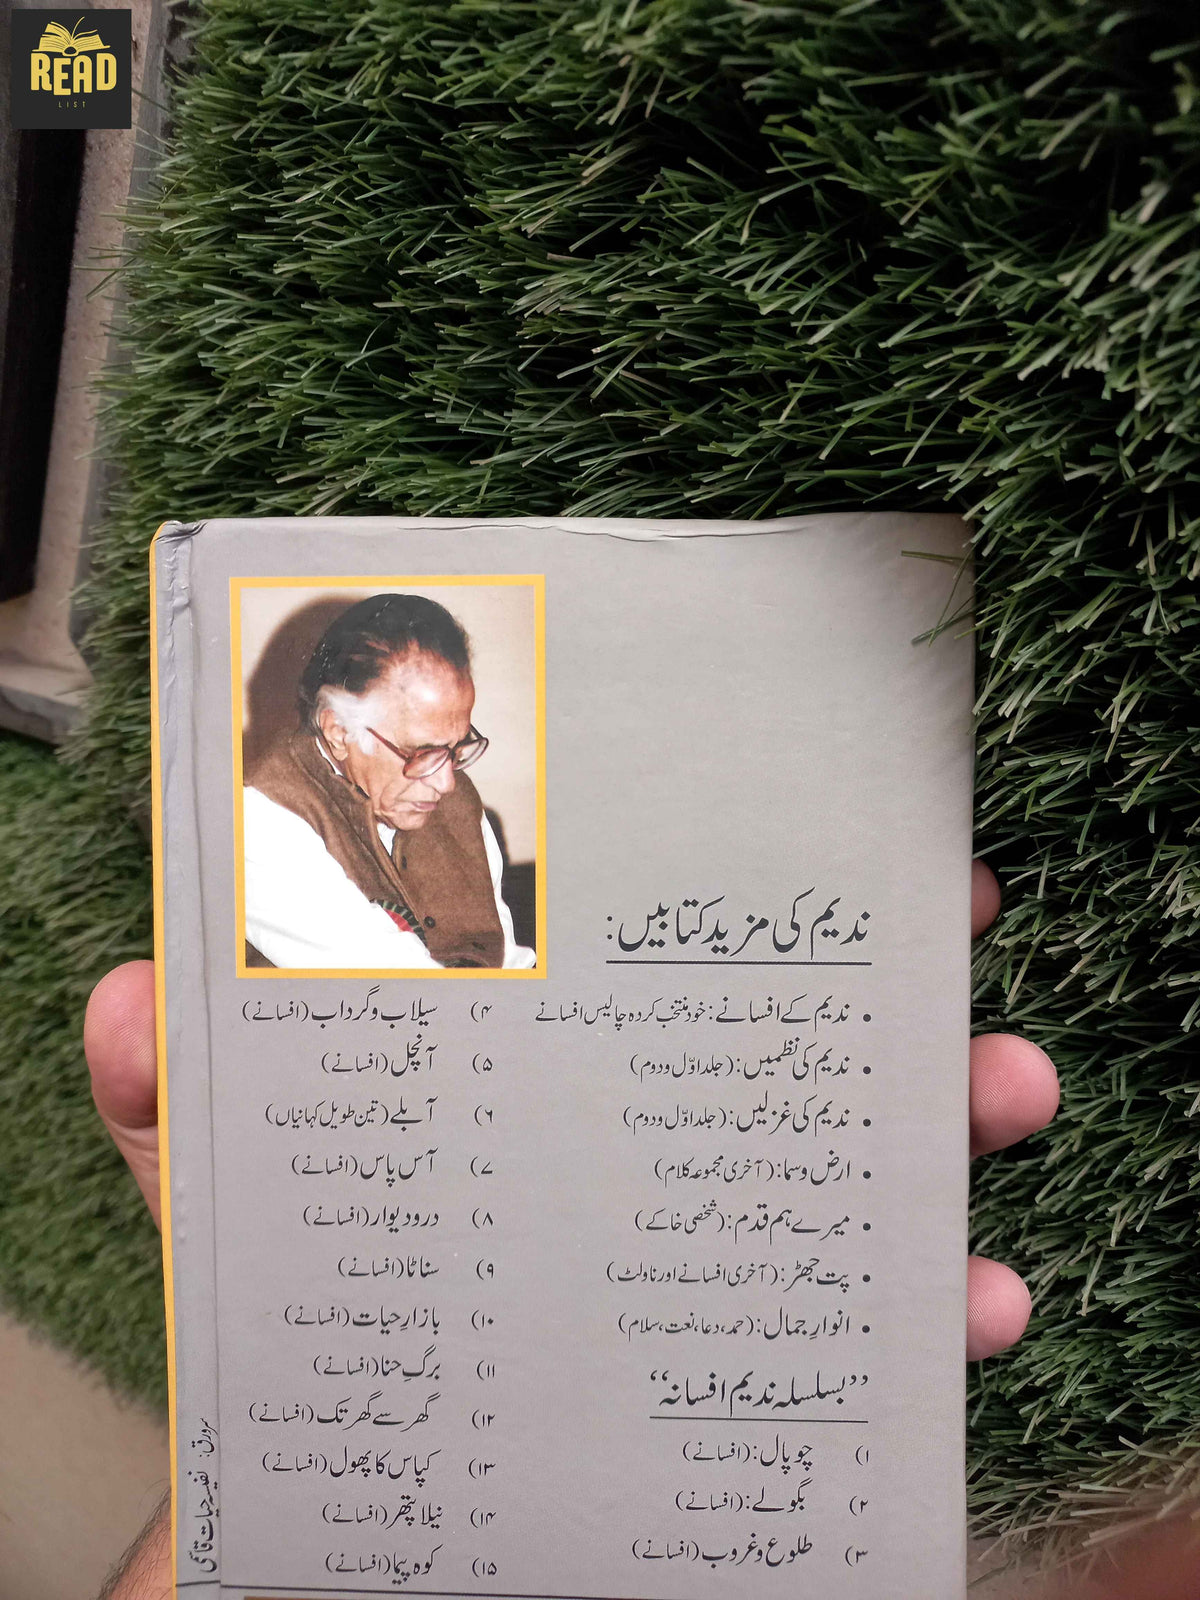 READ
LIST
ندیم کی مزید کتابیں:
• ندیم کے افسانے: خود منتخب کردہ چالیس افسانے
• ندیم کی نظمیں: (جلد اوّل و دوم)
• ندیم کی غزلیں: (جلد اوّل و دوم)
• ارض و سما: (آخری مجموعہ کلام)
• میرے ہم قدم: (شخصی خاکے)
• پت جھڑ: (آخری افسانے اور ناولٹ)
• انوارِ جمال: (حمد، دعا، نعت، سلام)
”بسلسلہ ندیم افسانہ“
۱) چوپال: (افسانے)
۲) بگولے: (افسانے)
۳) طلوع و غروب (افسانے)
۴) سیلاب و گرداب (افسانے)
۵) آنچل (افسانے)
۶) آبلے (تین طویل کہانیاں)
۷) آس پاس (افسانے)
۸) در و دیوار (افسانے)
۹) سناٹا (افسانے)
۱۰) بازارِ حیات (افسانے)
۱۱) برگِ حنا (افسانے)
۱۲) گھر سے گھر تک (افسانے)
۱۳) کپاس کا پھول (افسانے)
۱۴) نیلا پتھر (افسانے)
۱۵) کوہ پیما (افسانے)
سرورق: نفیسہ حیات قاسمی